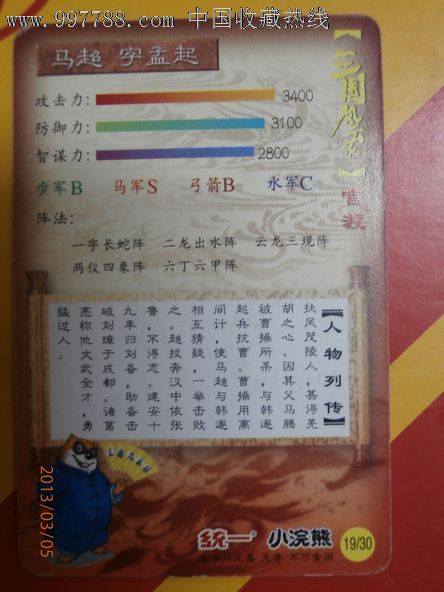 www.997788.com 中国收藏热线
马超 字孟起
三国风云
攻击力: 3400
防御力: 3100
智谋力: 2800
步军B 马军S 弓箭B 水军C
阵法:
一字长蛇阵 二龙出水阵 云龙三现阵
两仪四象阵 六丁六甲阵
【人物列传】
扶风茂陵人,甚得羌
胡之心。因其父马腾
被曹操所杀,与韩遂
起兵抗曹。曹操用离
间计,使马超与韩遂
相互猜疑,一举击败
之。超投奔汉中依张
鲁,不得志。建安十
九年归刘备,助备击
破刘璋于成都。诸葛
亮称他文武全才,勇
猛过人。
2013/03/05
统一 小浣熊
19/30
无毒 无害 不可食用